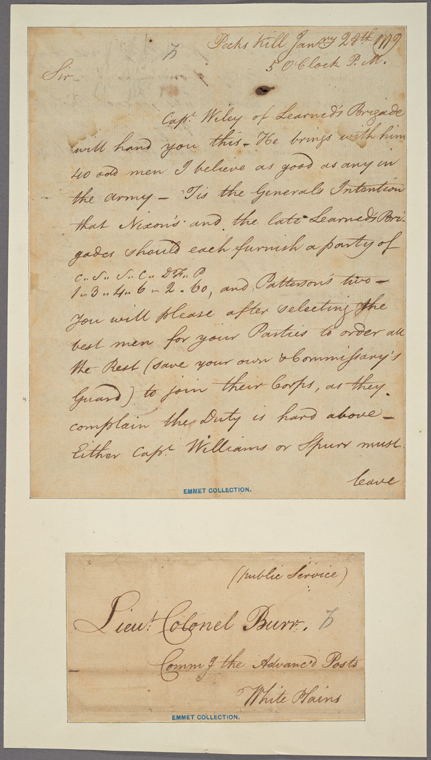 Peeks Kill Jany 28th 1779
5 O'Clock P.M.
Sir
Capt. Wiley of Learned's Brigade
will hand you this - He brings with him
40 odd men I believe as good as any in
the army - 'Tis the Generals Intention
that Nixon's and the late Learned's Bri
gades should each furnish a party of
C.. S.. S.. C.. D&F.. P
1.. 3.. 4.. 6.. 2.. 60, and Patterson's two -
You will please after selecting the
best men for your Parties to order all
the Rest (save your own & Commissary's
Guard) to join their Corps, as they
complain the Duty is hard above -
Either Capt. Williams or Spurr must
leave
EMMET COLLECTION.
(public Service)
Lieut. Colonel Burr.
Commg the Advanc'd Posts
White Plains
EMMET COLLECTION.